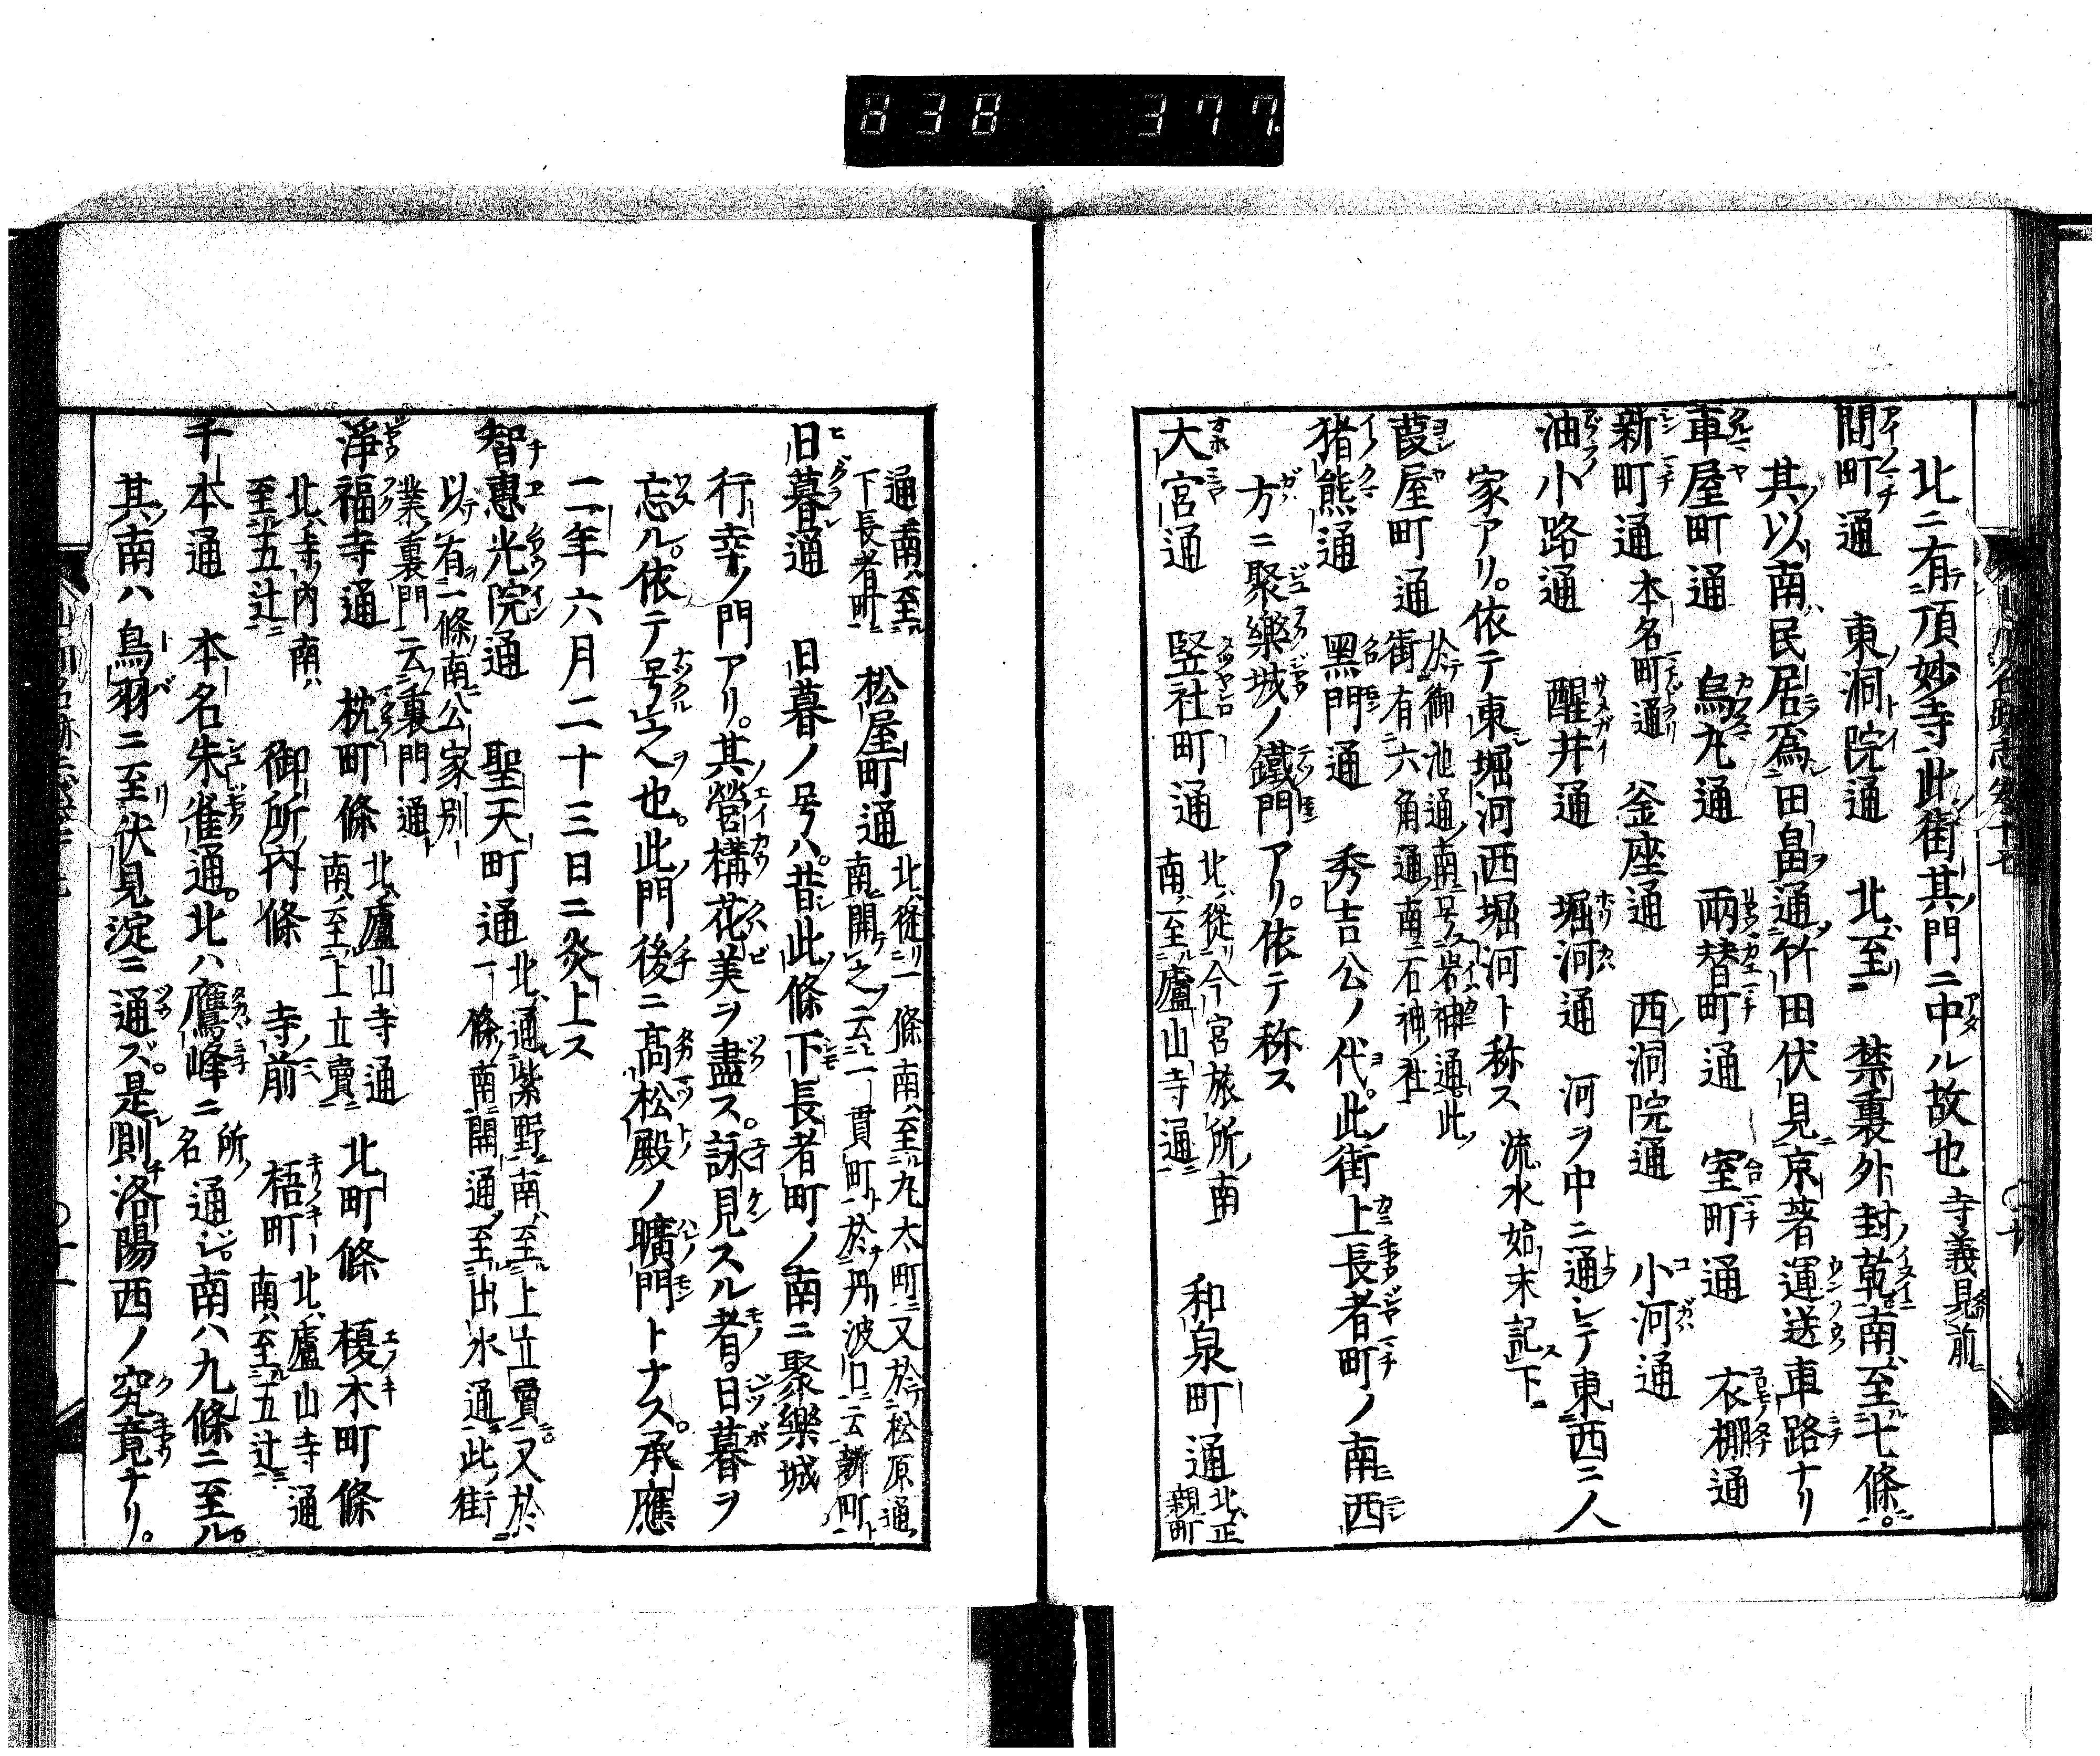 838 377
北ニ有頂妙寺此街其門ニ中ル故也 寺義見前
間町通 東洞院通 北至 禁裏外封乾南至七條
其以南民居爲田畠通竹田伏見京著運送車路ナリ
車屋町通 烏丸通 兩替町通 室町通 衣棚通
新町通 本名町通 釜座通 西洞院通 小河通
油小路通 醒井通 堀河通 河ヲ中ニ通シテ東西ニ人
家アリ。依テ東堀河西堀河ト称ス 流水始末記下
葭屋町通 於御池通南号岩神通此
街有六角通南ニ石神社
猪熊通 黒門通 秀吉公ノ代。此街上長者町ノ南西
方ニ聚樂城ノ鐵門アリ。依テ称ス
大宮通 竪社町通 北從今宮旅所南
南至廬山寺通 和泉町通 北正
親町
通南至
下長者町 松屋町通 北從一條南至丸太町又於松原通
南開之云一貫町於丹波口云新町
日暮通 日暮ノ号ハ。昔此條下長者町ノ南ニ聚樂城
行幸ノ門アリ。其營構花美ヲ盡ス。詠見スル者。日暮ヲ
忘ル。依テ号之也。此門後ニ髙松殿ノ曠門トナス。承應
二年六月二十三日ニ炎上ス
智惠光院通 聖天町通 北通紫野南至上立賣又於
一條南開通至出水通此街
以有一條南公家別
業裏門云裏門通
淨福寺通 枕町條 北廬山寺通
南至上立賣 北町條 榎木町條
北寺内南
至五辻 御所内條 寺前 梧町 北廬山寺通
南至五辻
千本通 本名朱雀通。北ハ鷹峰ニ 所名 通ジ。南ハ九條ニ至ル。
其南ハ鳥羽ニ至伏見淀ニ通ズ。是則洛陽西ノ究竟ナリ。